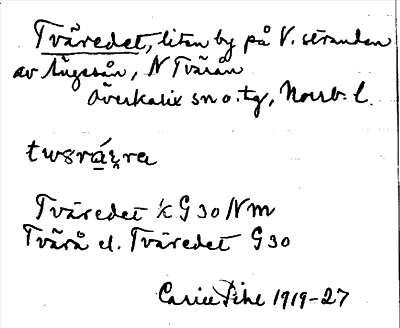 Tväredet, liten by på V. stranden
av Ängesån, N Tvärån
Överkalix sn o. tg, Norrb. l.
Tväredet k G 30 Nm
Tvärå el. Tväredet G 30
Carin Pihl 1919-27